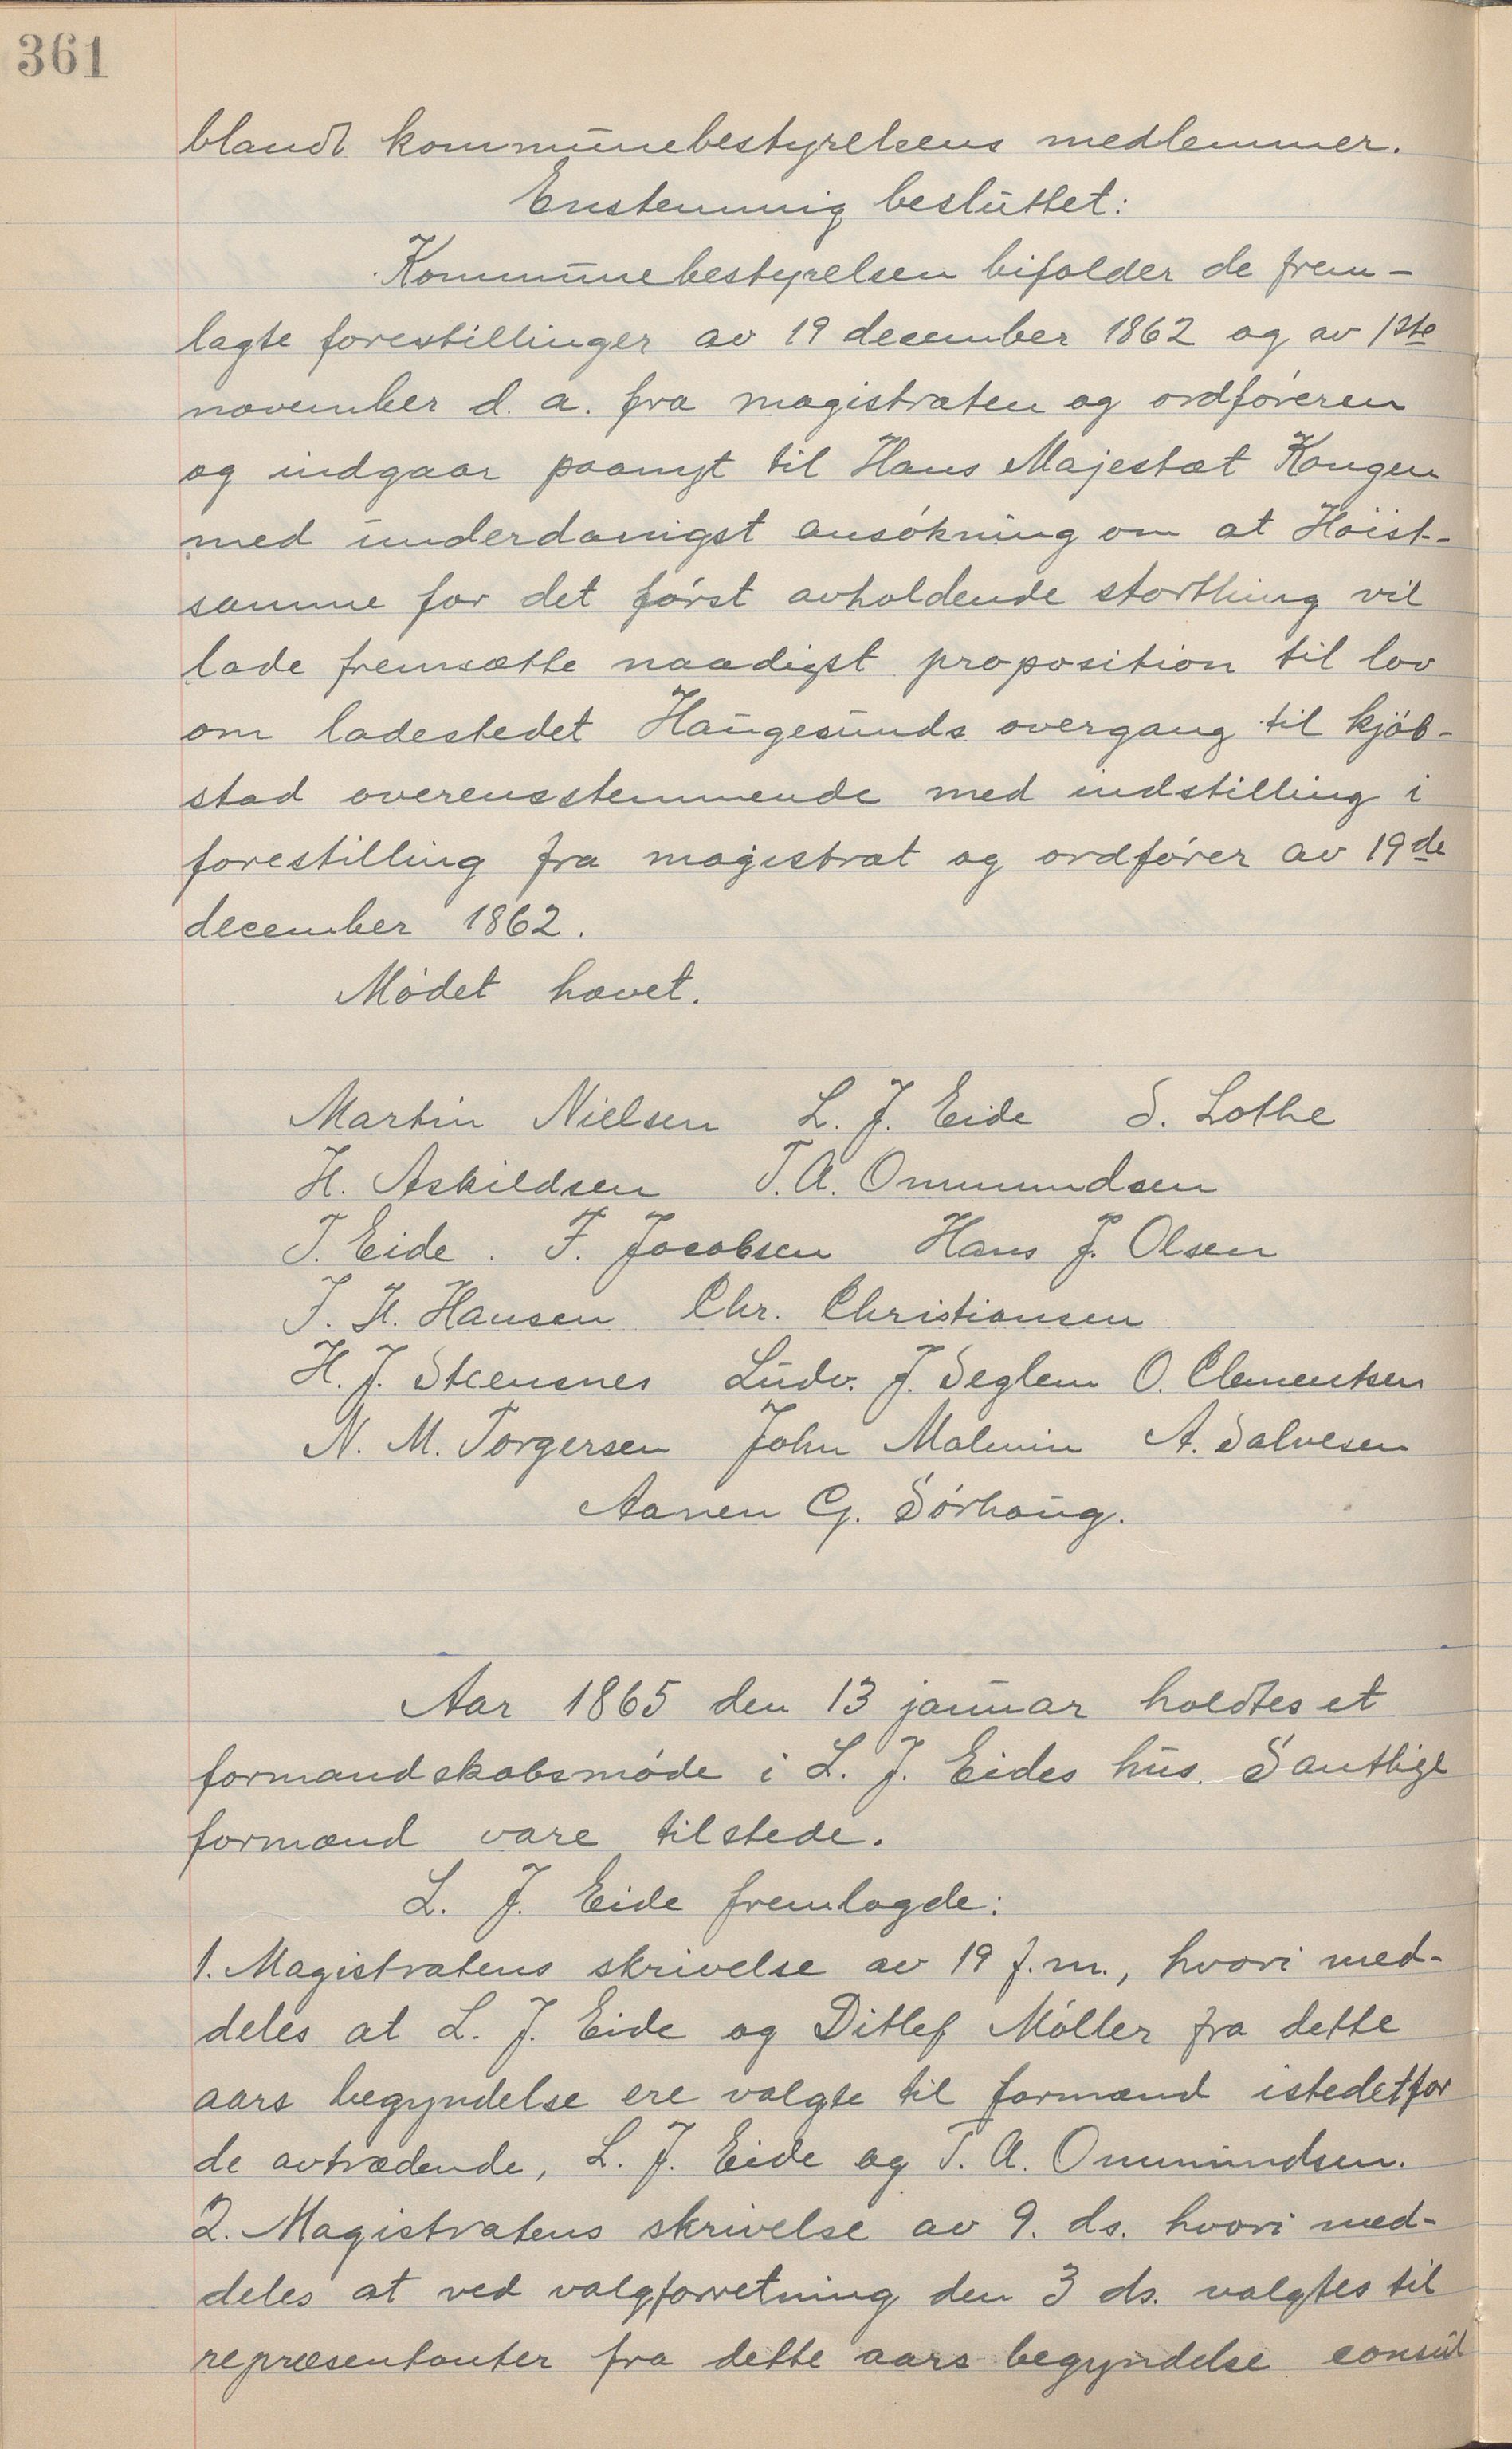 361
blandt kommunebestyrelsens medlemmer.
Enstemmig besluttet:
Kommunebestyrelsen bifalder de frem-
lagte forestillinger av 19 december 1862 og av 1ste
november d. a. fra magistraten og ordføreren
og indgaar paanyt til Hans Majestæt Kongen
med underdanigst ansøkning om at Høist-
samme for det først avholdende storthing vil
lade fremsætte naadigst proposition til lov
om ladestedet Haugesunds overgang til kjøb-
stad overensstemmende med indstilling i
forestilling fra magistrat og ordfører av 19de
december 1862.
Mødet hævet.
Martin Nielsen L. J. Eide S. Lothe
H. Askildsen T. A. Ommundsen
T. Eide. F. Jacobsen Hans J. Olsen
J. H. Hansen Chr. Christiansen
H. J. Steensnes Ludv. J. Seglem O. Clementsen
N. M. Torgersen John Malmin A. Salvesen
Aanen G. Sørhaug.
Aar 1865 den 13 januar holdtes et
formandskabsmøde i L. J. Eides hus. Samtlige
formænd vare tilstede.
L. J. Eide fremlagde:
1. Magistratens skrivelse av 19 f. m., hvori med-
deles at L. J. Eide og Ditlef Møller fra dette
aars begyndelse ere valgte til formænd istedetfor
de avtrædende, L. J. Eide og T. A. Ommundsen.
2. Magistratens skrivelse av 9. ds. hvori med-
deles at ved valgforretning den 3 ds. valgtes til
repræsentanter fra dette aars begyndelse consul